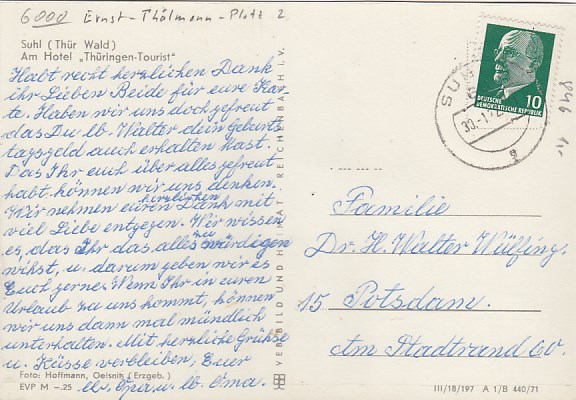 6000 Ernst-Thälmann-Platz 2
Suhl (Thür Wald)
Am Hotel „Thüringen-Tourist"
Habt recht herzlichen Dank
ihr Lieben Beide für eure Kar-
te. Haben wir uns doch gefreut
das Du lb. Walter dein Geburts
tagsgeld auch erhalten hast.
Das Ihr euch über alles gefreut
habt können wir uns denken.
herzlichen
Wir nehmen euren Dank mit
viel Liebe entgegen. Wir wissen
es, das Ihr das alles zu würdigen
wißst, u. darum geben wir es
Euch gerne. Wenn Ihr in euren
Urlaub zu uns kommt, können
wir uns dann mal mündlich
unterhalten. Mit herzliche Grühse
u. Küsse verbleiben, Euer
lb. Opa u. lb. Oma.
Foto: Hoffmann, Oelsnitz (Erzgeb.)
EVP M –.25
VEB BILD UND HEIMAT REICHENBACH I. V.
DEUTSCHE
DEMOKRATISCHE REPUBLIK
10
SUHL
30.-1.72
g
Familie
Dr. H. Walter Wülfing.
15 Potsdam.
Am Stadtrand 60.
III/18/197 A 1/B 440/71